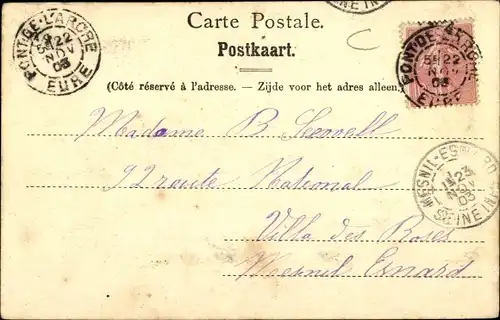 SEINE INF
Carte Postale.
Postkaart.
(Côté réservé à l'adresse. — Zijde voor het adres alleen.)
PONT-DE-L'ARCHE
5E 22
NOV
03
EURE
PONT-DE-L'ARCHE
5E 22
NOV
03
EURE
MESNIL-ESNARD
1E 23
NOV
03
SEINE INF
Madame B
92 route National
Villa des Roses
Mesnil Esnard